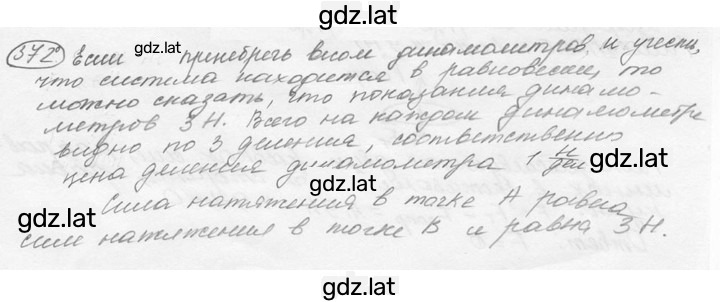 gdz.lat
372° Если gdz.lat пренебречь весом динамометров и учесть,
что система находится в равновесии, то
можно сказать, что показания динамо-
метров 3 Н. Всего на каждом динамометре
видно по 3 деления, соответственно
цена деления динамометра 1 Н/дел
gdz.lat
gdz.lat
Сила натяжения в точке А равна
gdz.lat
силе натяжения в точке В и равна 3 Н.
gdz.lat